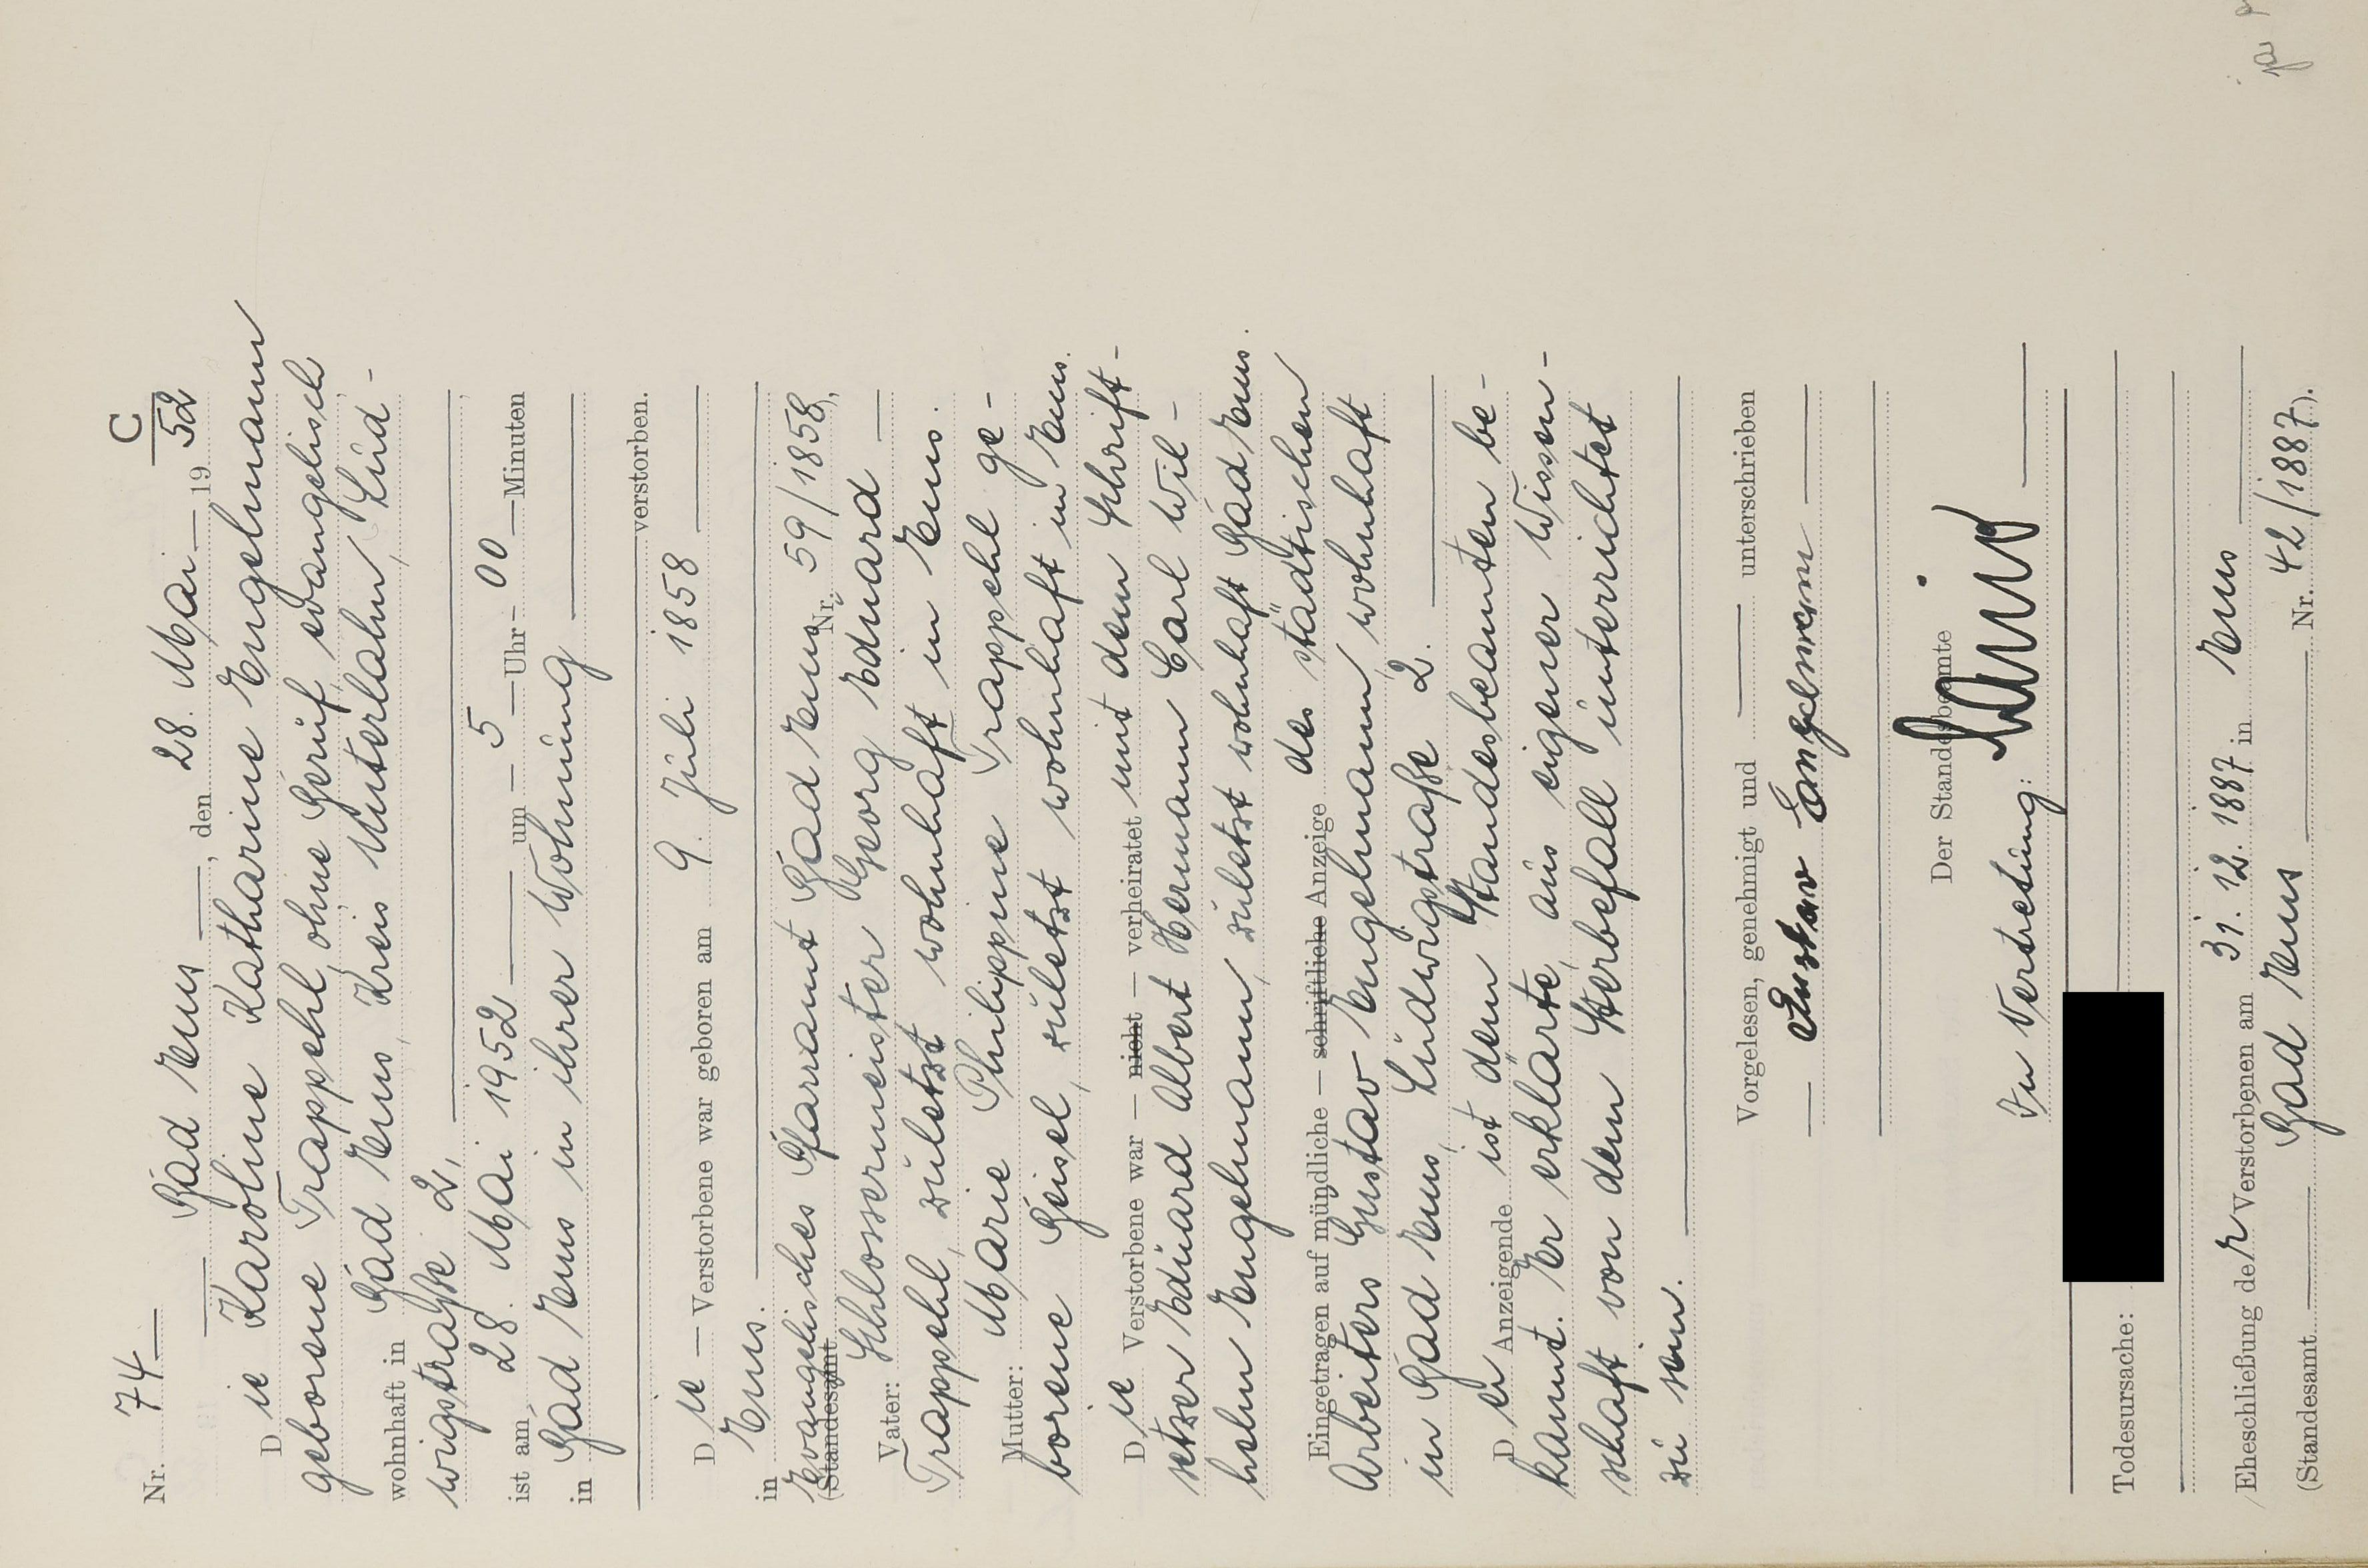 C
Nr. 74
Bad Ems, den 28. Mai 1952
Die Karoline Katharine Engelmann
geborene Trappehl, ohne Beruf, evangelisch
wohnhaft in Bad Ems, Kreis Unterlahn, Lud-
wigstraße 2,
ist am 28. Mai 1952 um 5 Uhr 00 Minuten
in Bad Ems in ihrer Wohnung
verstorben.
Die Verstorbene war geboren am 9. Juli 1858
in Ems.
Evangelisches Pfarramt Bad Ems
(Standesamt Nr. 59/1858)
Vater: Schlossermeister Georg Eduard
Trappehl, zuletzt wohnhaft in Ems.
Mutter: Marie Philippine Trappehl ge-
borene Geisel, zuletzt wohnhaft in Ems.
Die Verstorbene war — nicht — verheiratet mit dem Schrift-
setzer Eduard Albert Hermann Carl Wil-
helm Engelmann, zuletzt wohnhaft Bad Ems.
Eingetragen auf mündliche — schriftliche Anzeige des städtischen
Arbeiters Gustav Engelmann, wohnhaft
in Bad Ems, Ludwigstraße 2.
Der Anzeigende ist dem Standesbeamten be-
kannt. Er erklärte, aus eigener Wissen-
schaft von dem Sterbefall unterrichtet
zu sein.
Vorgelesen, genehmigt und unterschrieben
Gustav Engelmann
Der Standesbeamte
In Vertretung:
Todesursache:
Eheschließung der Verstorbenen am 31. 12. 1887 in Ems
(Standesamt Bad Ems Nr. 42/1887).